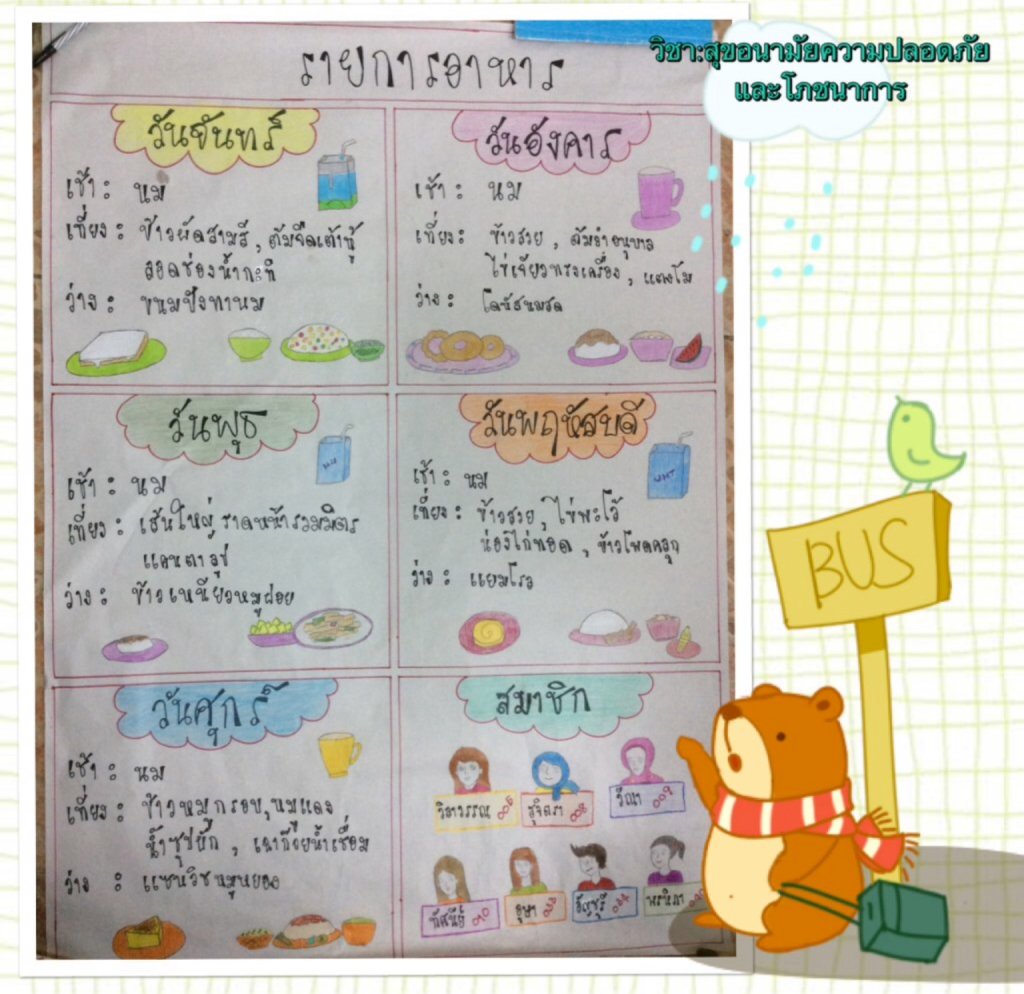 วิชา:สุขอนามัยความปลอดภัย
และโภชนาการ
รายการอาหาร
วันจันทร์
เช้า : นม
เที่ยง : ข้าวผัดสามสี , ต้มจืดเต้าหู้
ลอดช่องน้ำกะทิ
ว่าง : ขนมปังทานม
วันอังคาร
เช้า : นม
เที่ยง : ข้าวสวย , ต้มยำอนุบาล
ไข่เจียวทรงเครื่อง , แตงโม
ว่าง : โดนัสนมสด
วันพุธ
เช้า : นม
เที่ยง : เส้นใหญ่ราดหน้ารวมมิตร
แคนตาลูป
ว่าง : ข้าวเหนียวหมูฝอย
วันพฤหัสบดี
UHT
เช้า : นม
เที่ยง : ข้าวสวย , ไข่พะโล้
น่องไก่ทอด , ข้าวโพดคลุก
ว่าง : แยมโรล
วันศุกร์
เช้า : นม
เที่ยง : ข้าวหมูกรอบ, หมูแดง
น้ำซุปผัก , เฉาก๊วยน้ำเชื่อม
ว่าง : แซนวิชหมูหยอง
สมาชิก
วิลาวรรณ
สุจิตรา 008
วีณา 009
ทัศนีย์ 010
อุษา
BUS